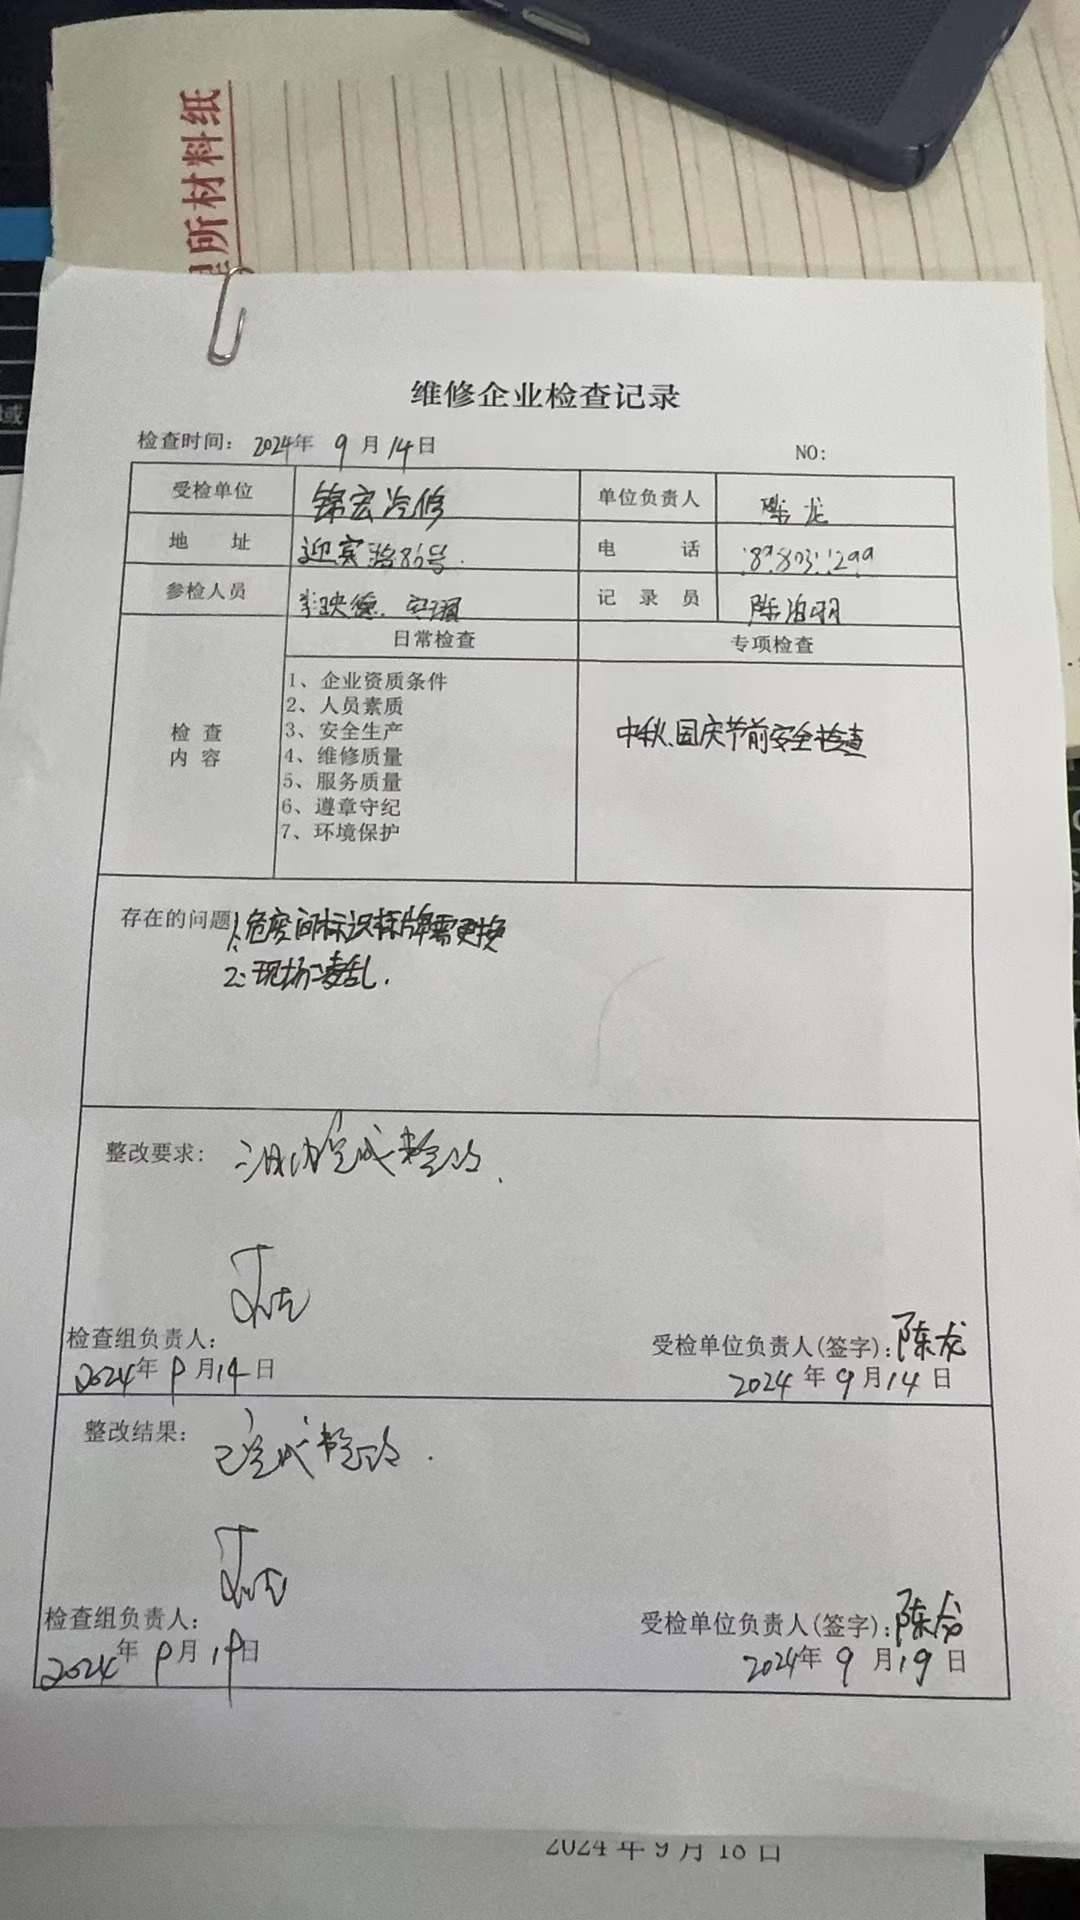 所材料纸
域
维修企业检查记录
检查时间： 2024年 9 月 14 日
NO：
受检单位 锦宏汽修 单位负责人 陈龙
地 址 迎宾路86号. 电 话
参检人员 李映德. 记录员 陈泊羽
检查内容 日常检查 专项检查
1、企业资质条件
2、人员素质
3、安全生产
4、维修质量
5、服务质量
6、遵章守纪
7、环境保护
中秋、国庆节前安全检查
存在的问题 1、危废间标识标牌需更换
2、现场凌乱.
整改要求： 三日内完成整改.
检查组负责人：
2024年 9 月 14 日
受检单位负责人(签字)：陈龙
2024 年 9 月 14 日
整改结果： 已完成整改.
检查组负责人：
2024年 9 月 19 日
受检单位负责人(签字)：陈龙
2024年 9 月 19 日
2024 年 9 月 18 日